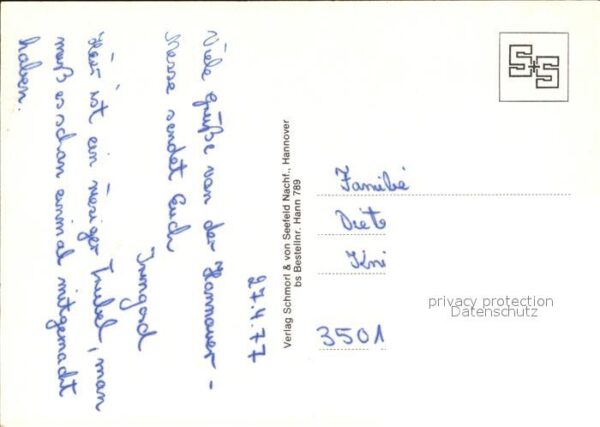 27.4.77
Viele Grüße von der Hannover-
Messe sendet Euch
Irmgard
Hier ist ein riesiger Trubel, man
muß es schon einmal mitgemacht
haben.
Verlag Schmorl & von Seefeld Nachf., Hannover
bs Bestellnr. Hann 789
S+S
Familie
Diet
Kni
3501
privacy protection
Datenschutz